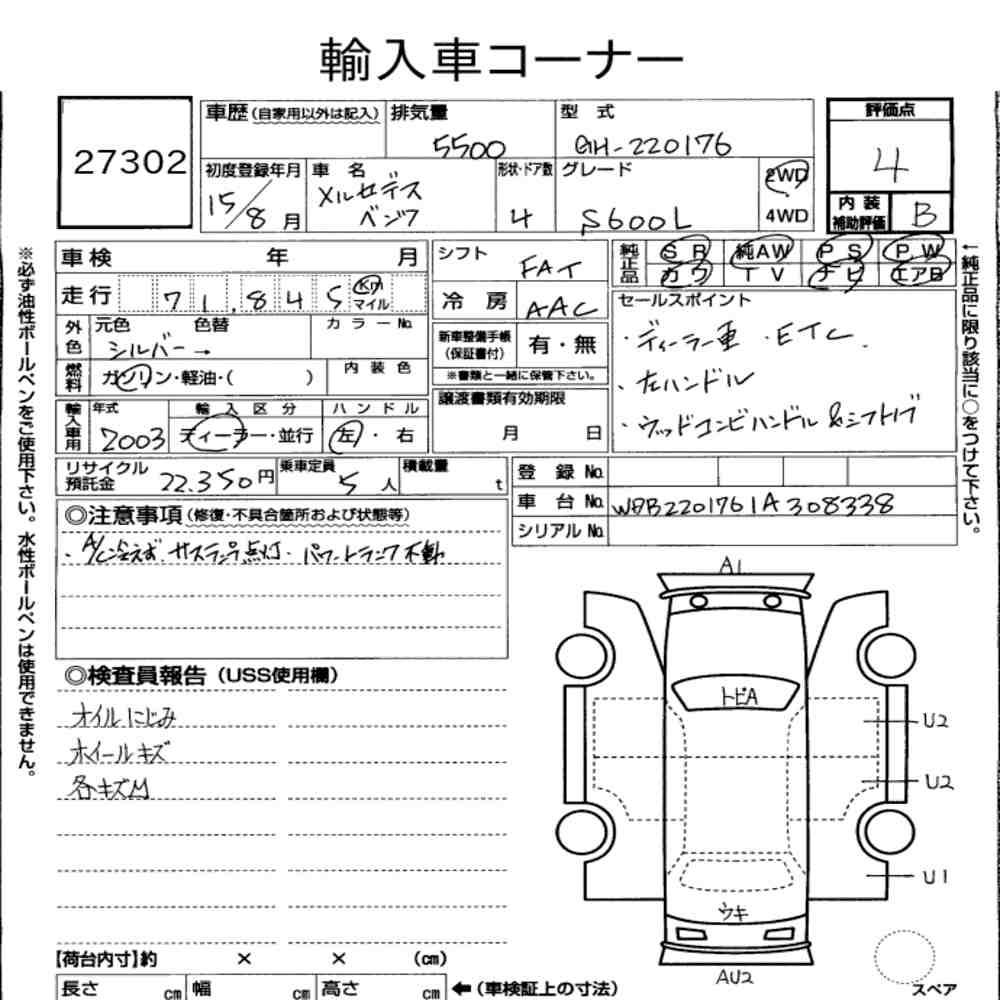 輸入車コーナー
27302
車歴(自家用以外は記入)
排気量
5500
型 式
GH-220176
評価点
4
初度登録年月
15/8月
車 名
メルセデス
ベンツ
形状・ドア数
4
グレード
S600L
2WD
4WD
内 装
補助評価
B
車検 年 月
シフト
FAT
純正品
SR 純AW PS PW
カワ TV ナビ エアB
走行 71,845 Km マイル
冷 房
AAC
セールスポイント
・ディーラー車 ・ETC
・左ハンドル
・ウッドコンビハンドル&シフトノブ
外色
元色 色替
シルバー→
カラーNo.
新車整備手帳
(保証書付)
有・無
※書類と一緒に保管下さい。
燃料
ガソリン・軽油・( )
内 装 色
譲渡書類有効期限
月 日
輸入車用
年式
2003
輸 入 区 分
ディーラー・並行
ハ ン ド ル
左・右
リサイクル
預託金
22.350円
乗車定員
5人
積載量
t
登 録 No.
車 台 No.
WDB2201761A308338
シリアル No.
◎注意事項(修復・不具合箇所および状態等)
・A/C冷えず.サスランプ点灯.パワートランク不動
◎検査員報告(USS使用欄)
オイルにじみ
ホイールキズ
各キズM
A1
トビA
U2
U2
U1
ウキ
AU2
スペア
【荷台内寸】約 × × (cm)
長さ cm 幅 cm 高さ cm ←(車検証上の寸法)
※必ず油性ボールペンをご使用下さい。水性ボールペンは使用できません。
←純正品に限り該当に○をつけて下さい。